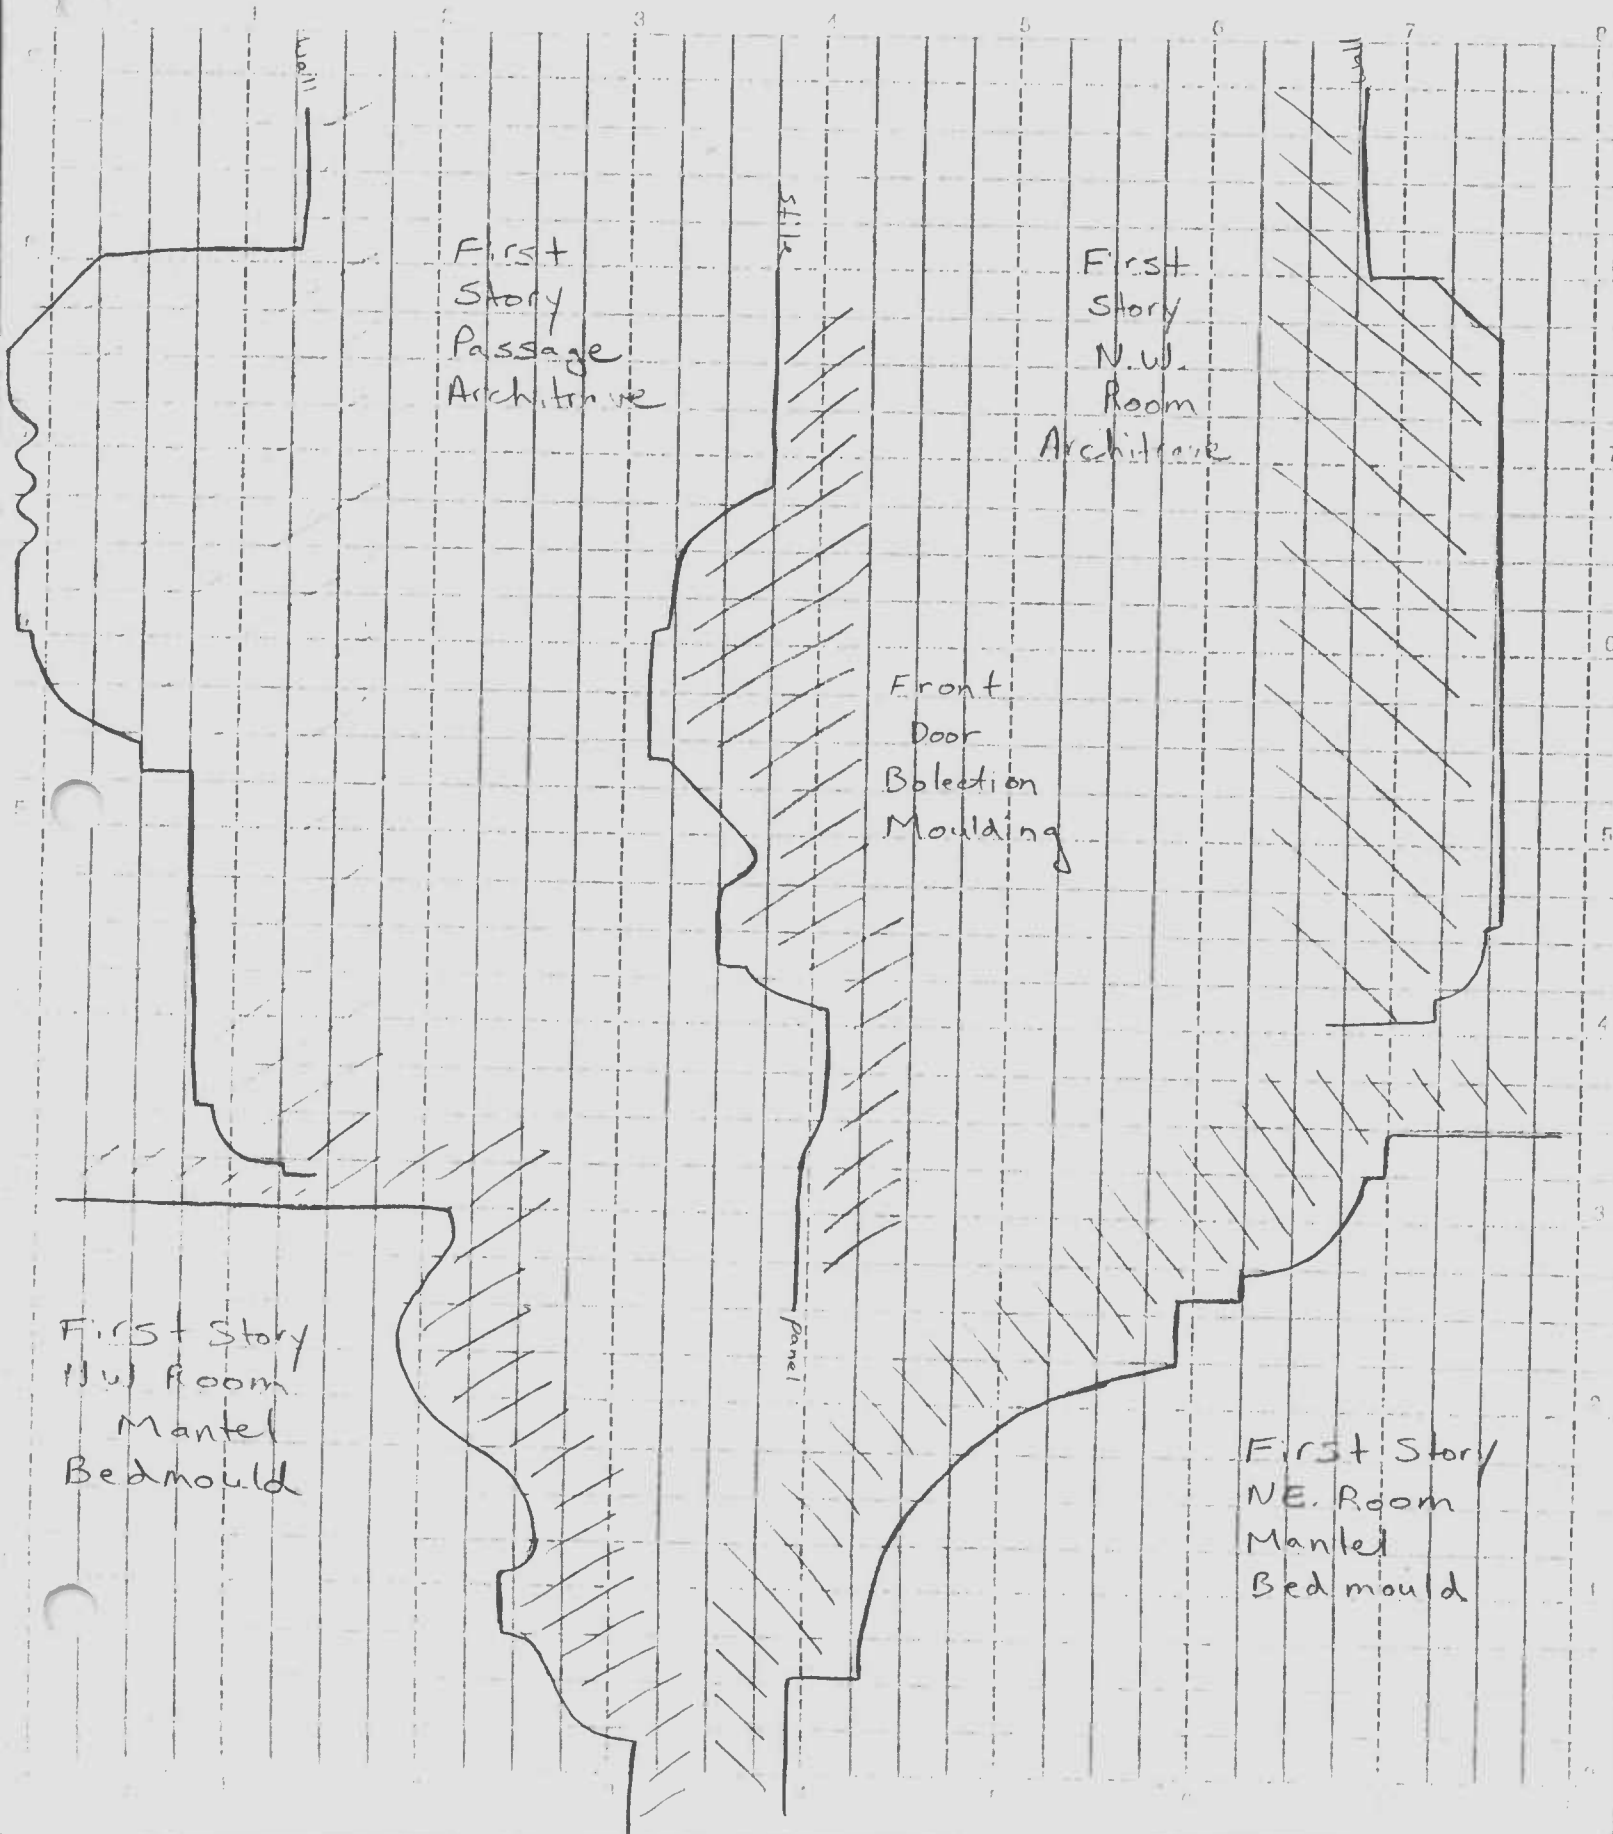 1 2 3 4 5 6 7 8
wall
wall
stile
First
Story
Passage
Architrave
First
Story
N.W.
Room
Architrave
Front
Door
Bolection
Moulding
5
4
3
panel
First Story
NW Room
Mantel
Bedmould
First Story
NE. Room
Mantel
Bed mould